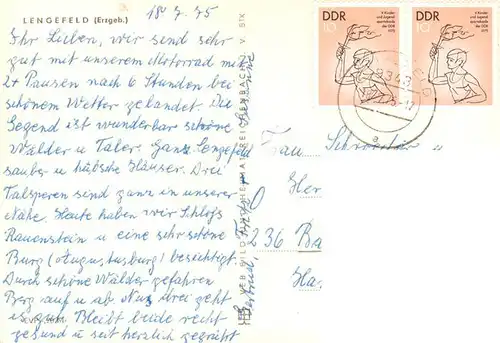 LENGEFELD (Erzgeb.)
18.7.75
Ihr Lieben, wir sind sehr
gut mit unserem Motorrad mit
2 Pausen nach 6 Stunden bei
schönem Wetter gelandet. Die
Gegend ist wunderbar schöne
Wälder u Täler. Ganz Lengefeld
sauber u hübsche Häuser. Drei
Talsperen sind ganz in unserer
Nähe. Heute haben wir Schloß
Rauenstein u eine sehr schöne
Burg (Augustusburg) besichtigt.
Durch schöne Wälder gefahren
Berg auf u ab. Nur drei geht
es auf. Bleibt beide recht
gesund u seit herzlich gegrüßt
DDR
10
V. Kinder-
und Jugend-
spartakiade
der DDR
1975
DDR
10
V. Kinder-
und Jugend-
spartakiade
der DDR
1975
Frau
Schwester
Her
236 Ba
Has
VEB BILD
REICHENBACH